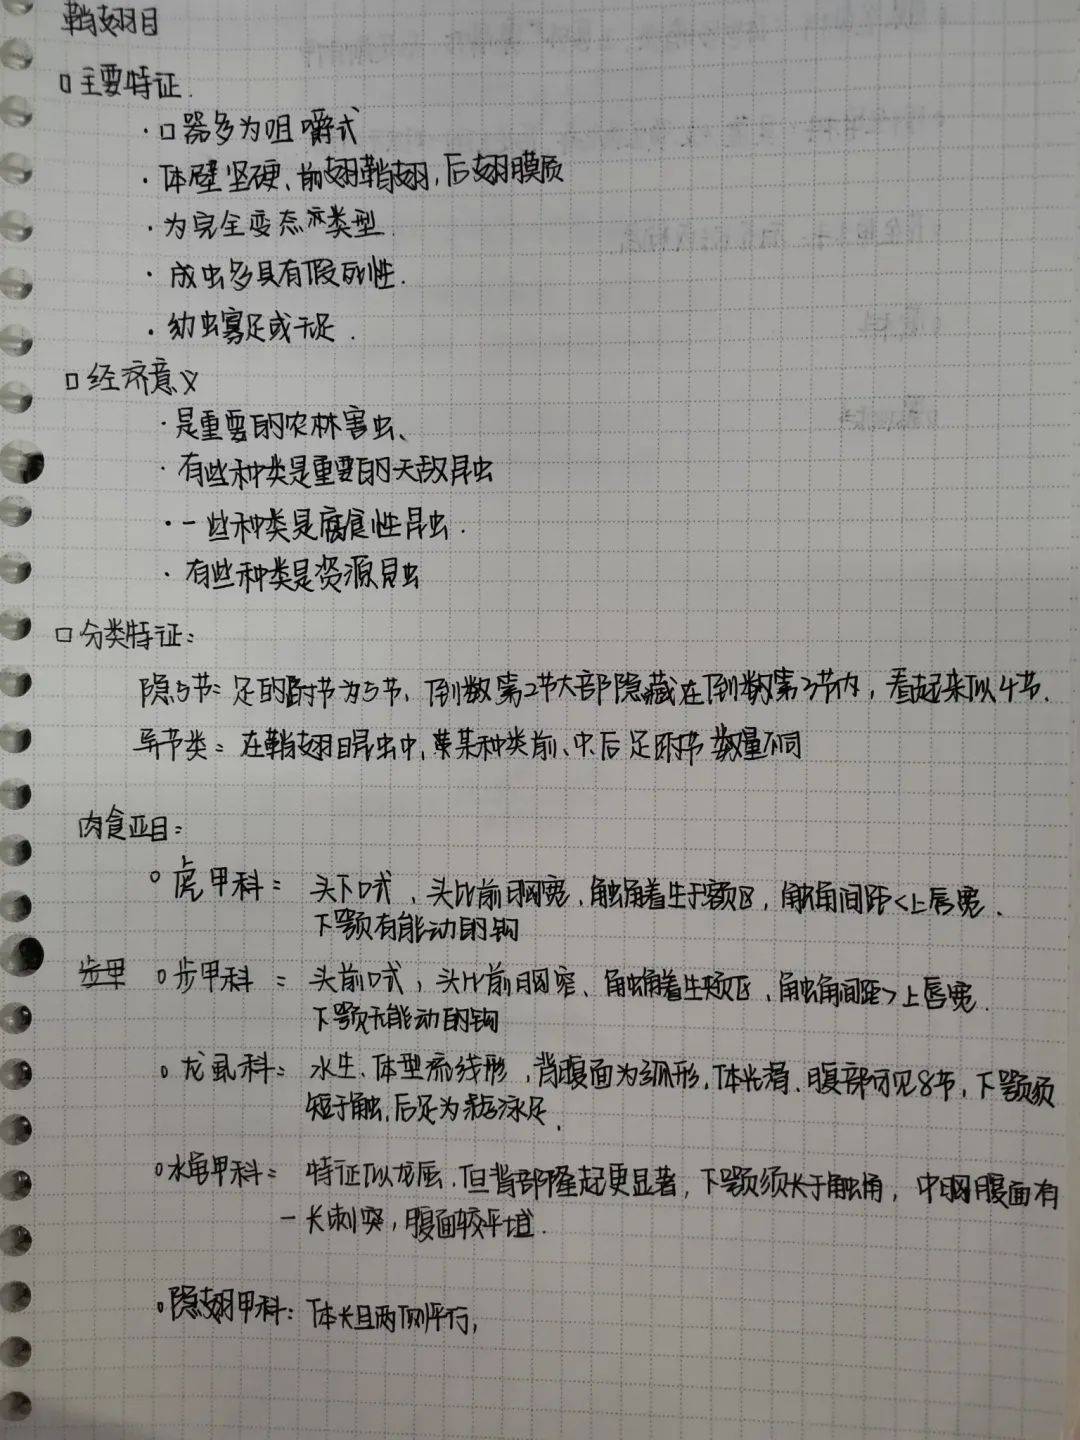 鞘翅目
主要特证.
·口器多为咀嚼式
·体壁坚硬、前翅鞘翅,后翅膜质
·为完全变态类型.
·成虫多具有假死性.
·幼虫寡足或无足.
经济意义
·是重要的农林害虫、
·有些种类是重要的天敌昆虫
·一些种类是腐食性昆虫.
·有些种类是资源昆虫
分类特证:
隐5节:足的跗节为5节、倒数第2节大部隐藏在倒数第3节内,看起来似4节.
异节类:在鞘翅目昆虫中,某种类前、中、后足跗节数量不同
肉食亚目:
虎甲科:头下口式,头比前胸宽,触角着生于额区,触角间距<上唇宽.
下颚有能动的钩
步甲科:头前口式,头比前胸窄、触角着生颊区,触角间距>上唇宽.
下颚无能动的钩
龙虱科:水生、体型流线形,背腹面为弧形,体光滑.腹部可见8节,下颚须
短于触,后足为游泳足.
水龟甲科:特征似龙虱.但背部隆起更显著,下颚须长于触角,中胸腹面有
一长刺突,腹面较平坦.
隐翅甲科:体长且两侧平行,